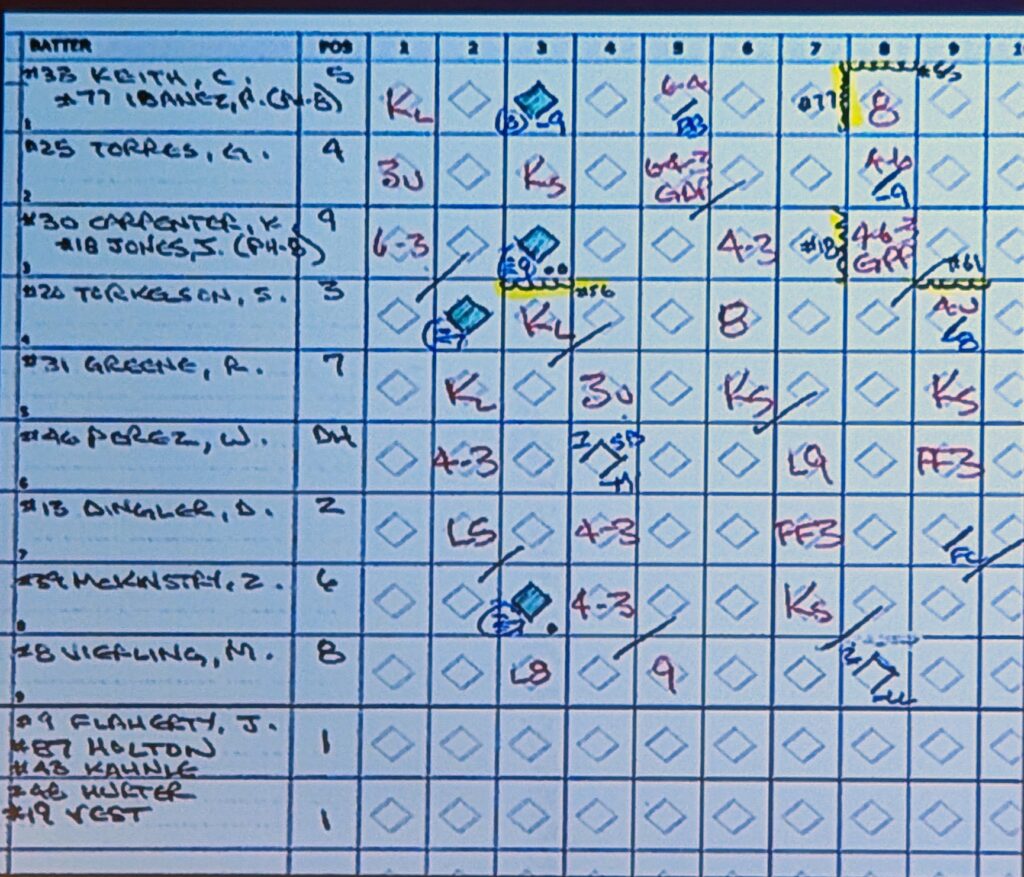 BATTER POS 1 2 3 4 5 6 7 8 9 1
#33 KEITH, C. 5
#77 IBANEZ, A. (PH-8) KL -9 6-4 BB #77 8
1
#25 TORRES, G. 4 3U KS 6-4-3 GDP 4-6 -9
2
#30 CARPENTER, K 9 6-3 4-3 #18 4-6-3 GDP
#18 JONES, J. (PH-8) #61
3
#20 TORKELSON, S. 3 KL #56 8
4
#31 GREENE, R. 7 KL 3U KS KS
5
#46 PEREZ, W. DH 4-3 SB L9 FF3
6
#13 DINGLER, D. 2 L5 4-3 FF3 FC
7
#39 MCKINSTRY, Z. 6 4-3 KS
8
#8 VIERLING, M. 8 L8 9
9
#9 FLAHERTY, J.
#87 HOLTON 1
#43 KAHNLE
#48 HURTER
#19 VEST 1